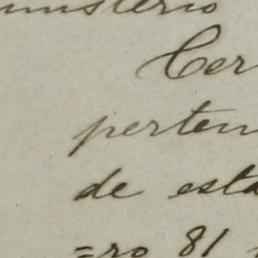 ministerio
Cer
perten
de esta
=ro 81